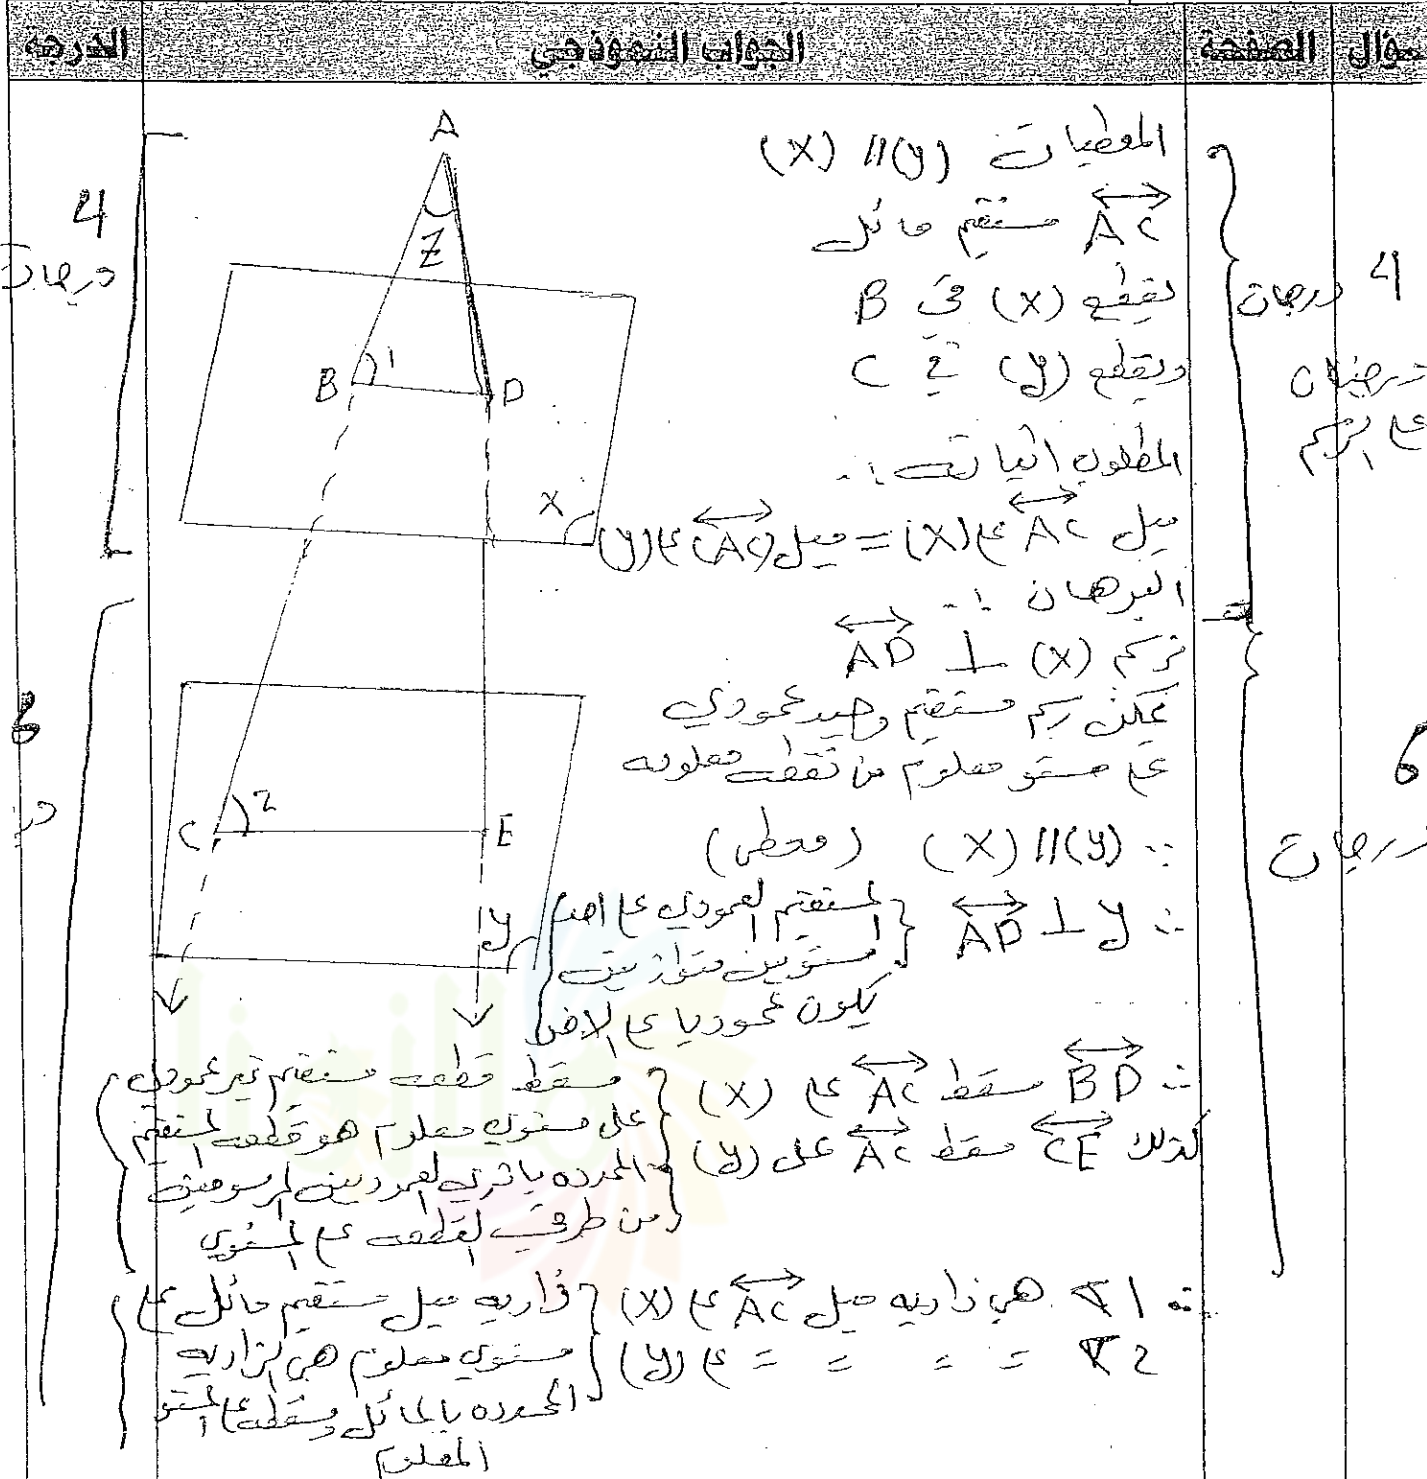 سؤال الصفحة الجواب النموذجي الدرجة
المعطيات (X) // (y)
AC مستقيم مائل
يقطع (X) في B
ويقطع (y) في C
المطلوب اثباته :-
ميل AC ع (X) = ميل (AC) ع (y)
البرهان :-
نرسم AD ⊥ (X)
يمكن رسم مستقيم وحيد عمودي
على مستو معلوم من نقطة معلومه
∵ (X) // (y) (معطى)
∴ AD ⊥ y { المستقيم العمودي على احد
مستويين متوازيين
يكون عموديا على الاخر
∴ BD مسقط AC على (X)
كذلك CE مسقط AC على (y)
{ مسقط قطعه مستقيم غير عمودي
على مستوي معلوم هو قطعه المستقيم
المحدده باثري العمودين المرسومين
من طرفي القطعه على المستوي
∴ ∢1 هي زاويه ميل AC على (X)
∢2 = = = = على (y)
{ زاويه ميل مستقيم مائل على
مستوي معلوم هي الزاويه
المحدده بالمائل ومسقطه على المستو
المعلوم
A
Z
B 1 D
X
C 2 E
y
4
درجات
6
4 درجات
درجتان
على الرسم
6
درجات